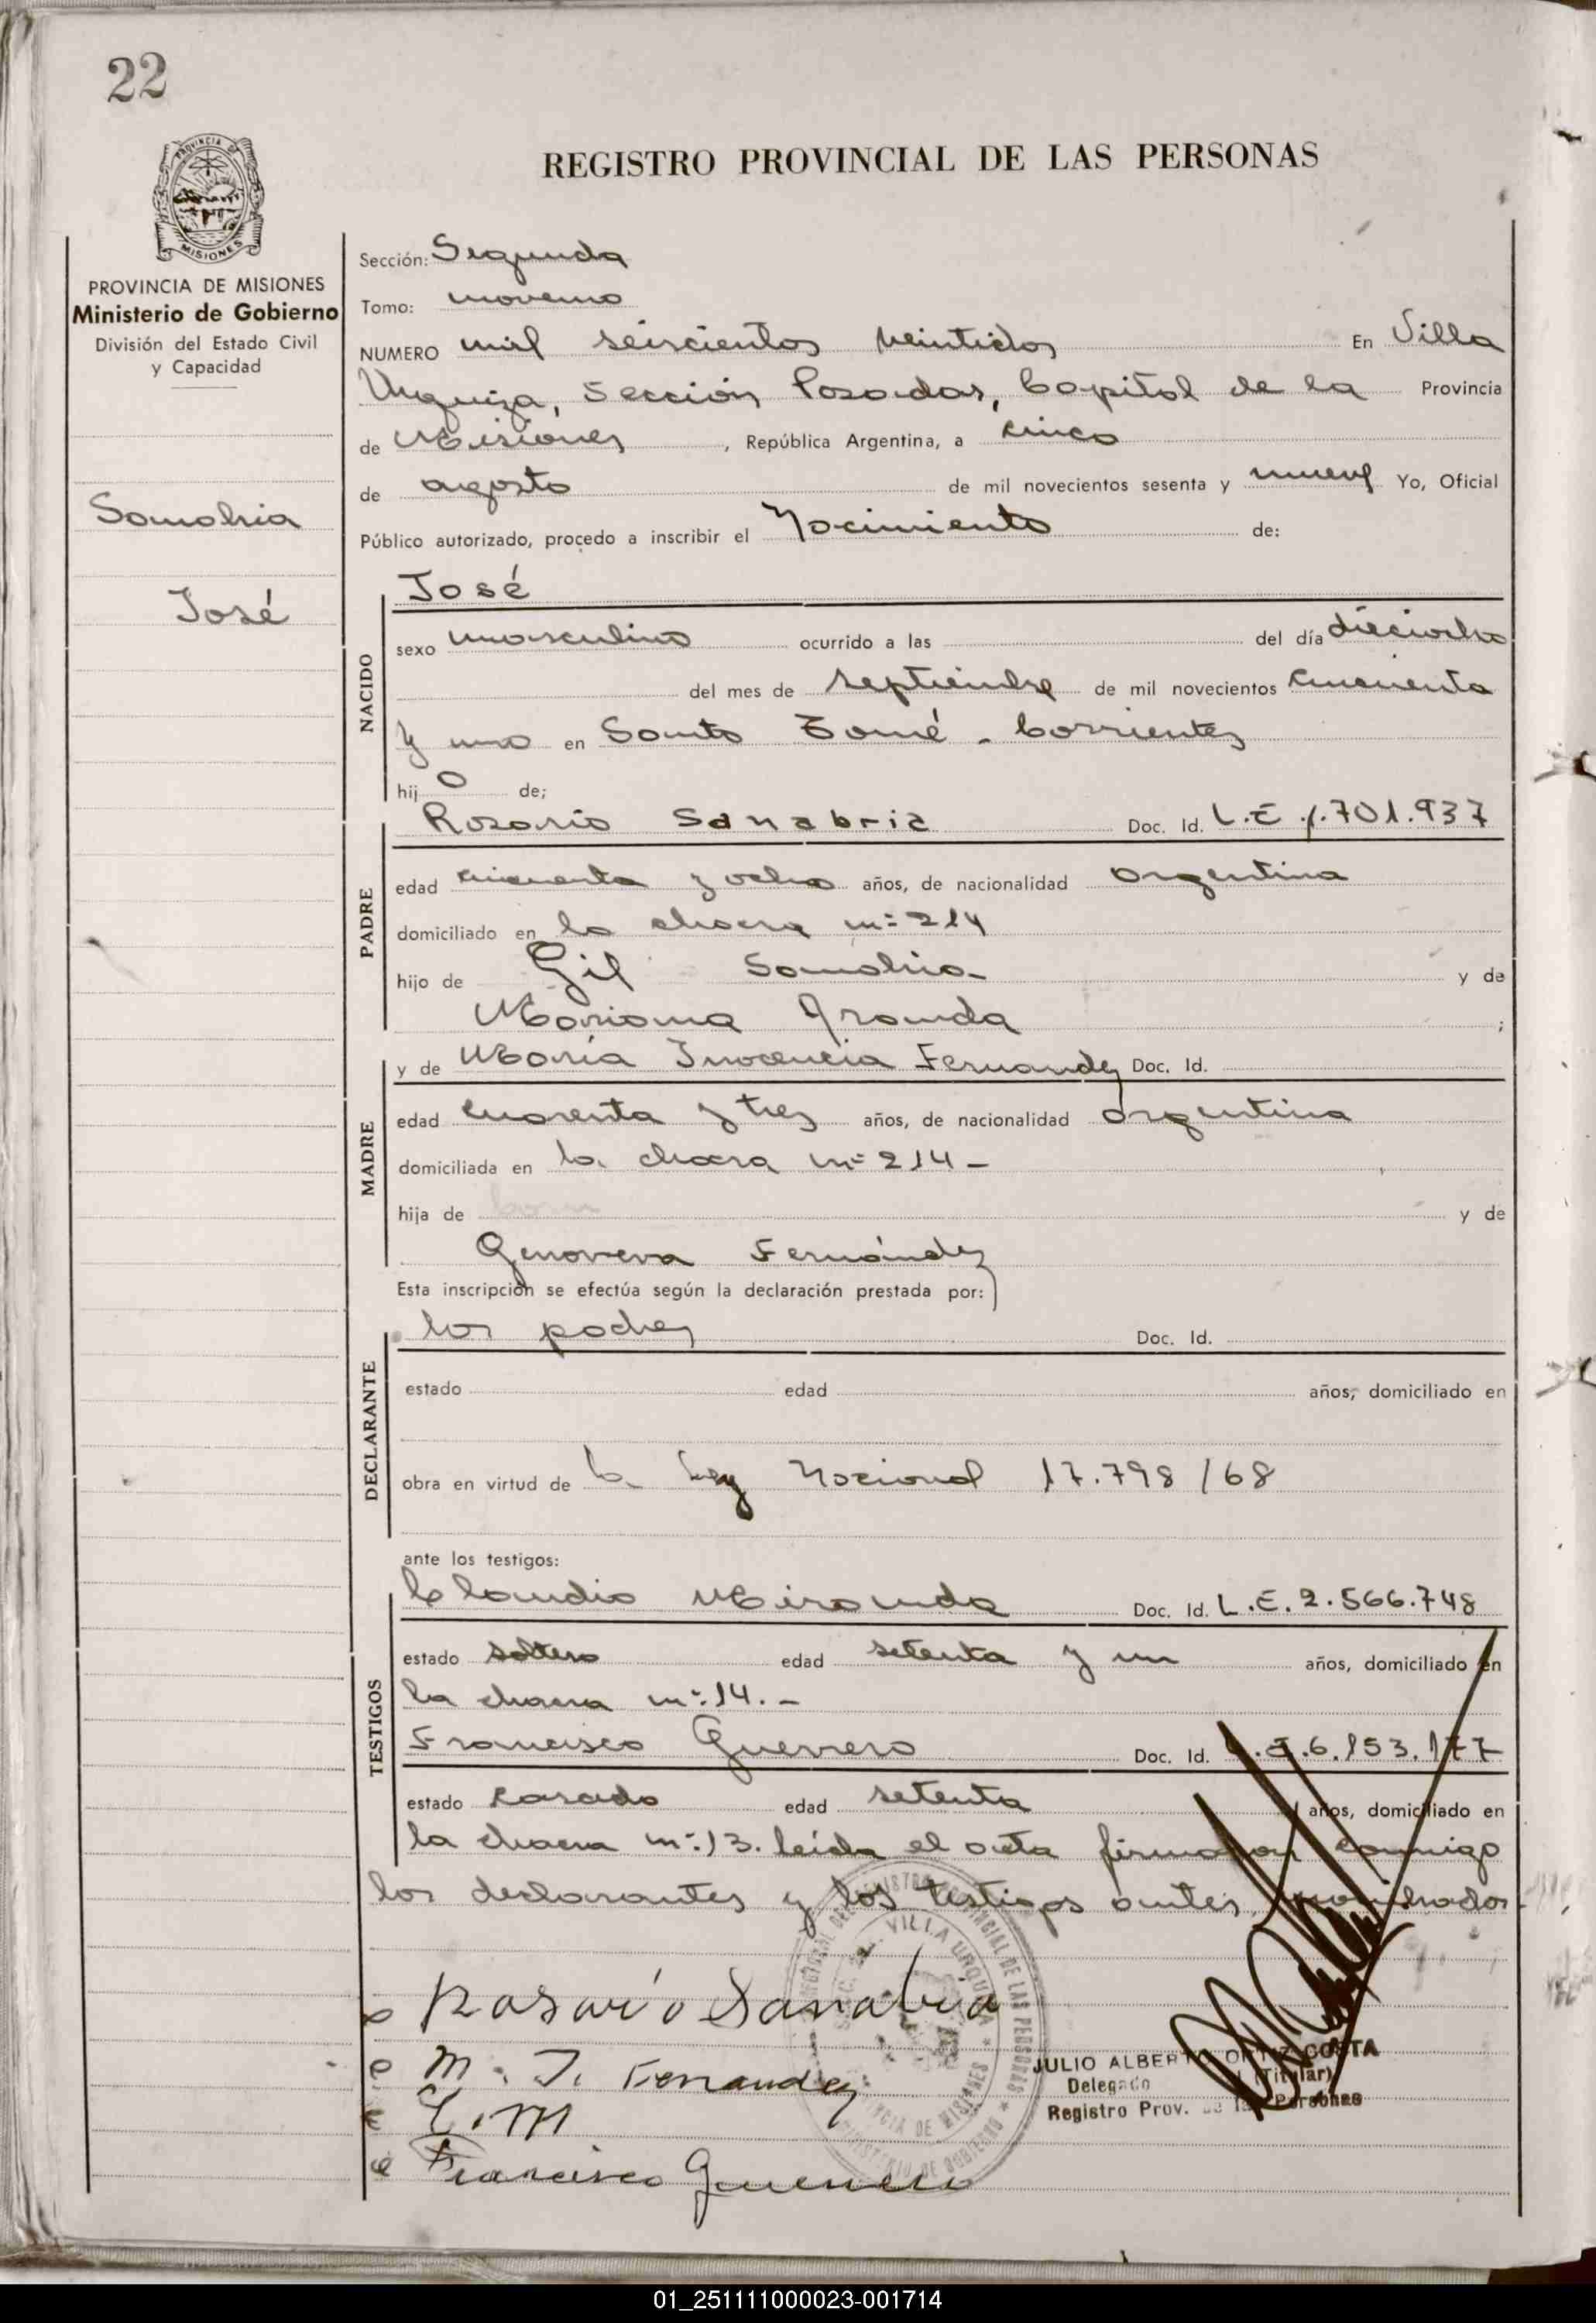 22
PROVINCIA DE
MISIONES
REGISTRO PROVINCIAL DE LAS PERSONAS
PROVINCIA DE MISIONES
Ministerio de Gobierno
División del Estado Civil
y Capacidad
Sanabria
José
Sección: Segunda
Tomo: noveno
NUMERO mil seiscientos veintidos En Villa
Urquiza, Sección Posadas, Capital de la Provincia
de Misiones, República Argentina, a cinco
de agosto de mil novecientos sesenta y nueve Yo, Oficial
Público autorizado, procedo a inscribir el Nacimiento de:
José
NACIDO
sexo masculino ocurrido a las del día dieciocho
del mes de septiembre de mil novecientos cincuenta
y uno en Santo Tomé - Corrientes
hij o de;
PADRE
Rosario Sanabria Doc. Id. L.E 1.701.937
edad cincuenta y ocho años, de nacionalidad argentina
domiciliado en la chacra nº 214
hijo de Gil Sanabria y de
Mariana Aranda ;
MADRE
y de María Inocencia Fernandez Doc. Id.
edad cuarenta y tres años, de nacionalidad argentina
domiciliada en la chacra nº 214 -
hija de y de
Genoveva Fernández
Esta inscripción se efectúa según la declaración prestada por:
DECLARANTE
los padres Doc. Id.
estado edad años, domiciliado en
obra en virtud de la Ley Nacional 17.798/68
ante los testigos:
TESTIGOS
Claudio Miranda Doc. Id. L.E. 2.566.748
estado soltero edad setenta y un años, domiciliado en
la chacra nº 14. -
Francisco Guerrero Doc. Id. 6.153.177
estado casado edad setenta años, domiciliado en
la chacra nº 13. leída el acta firman conmigo
los declarantes y los testigos antes nombrados
Rosario Sanabria
M. I. Fernandez
C. M
Francisco Guerrero
VILLA URQUIZA
JULIO ALBERTO ORTIZ COSTA
Delegado (Titular)
Registro Prov. de las Personas
01_251111000023-001714